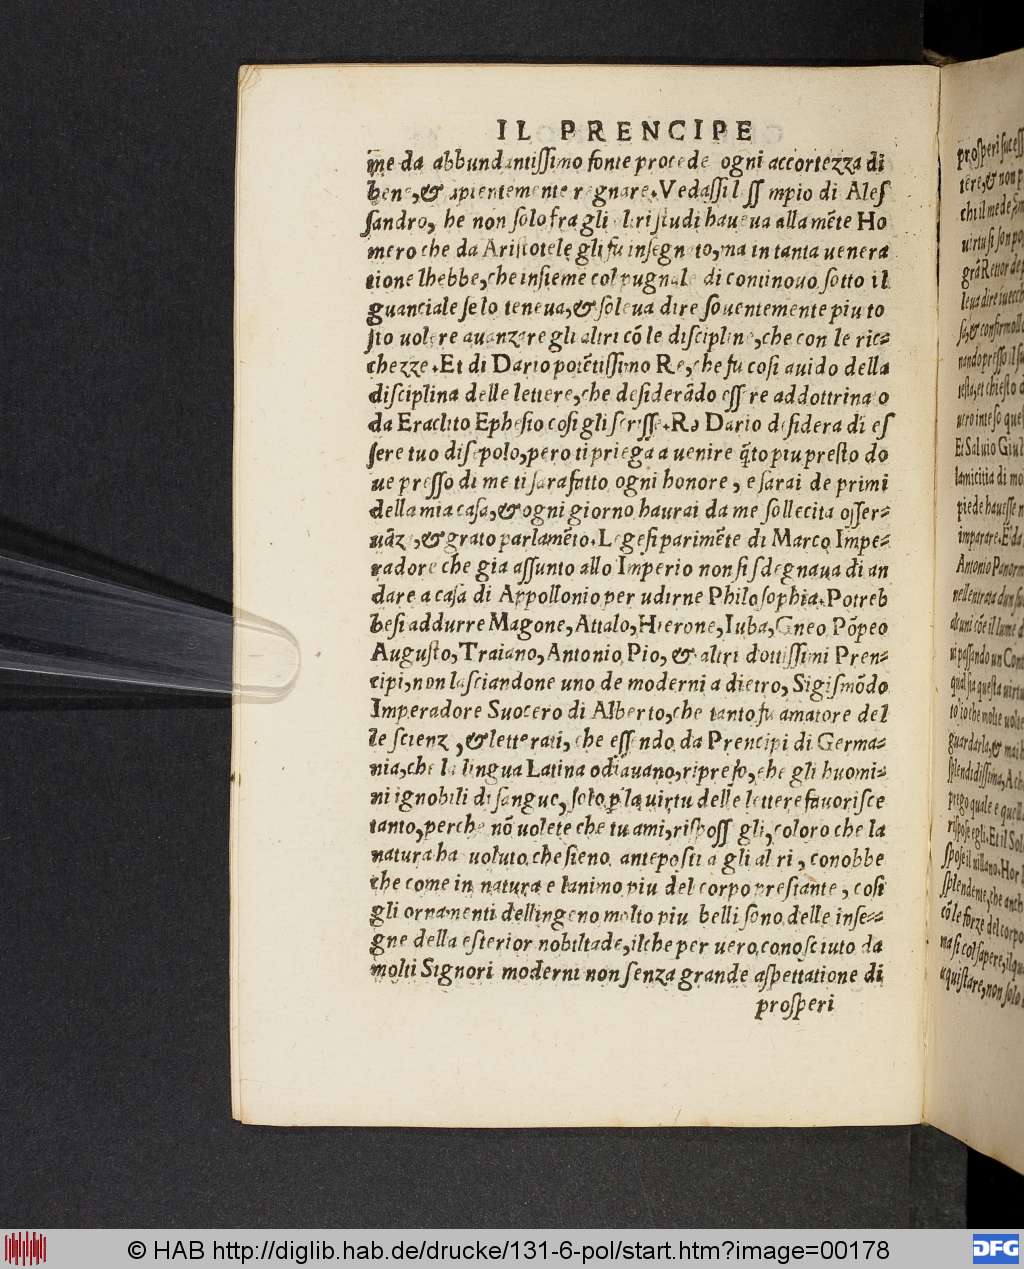 IL PRENCIPE
me da abbundantissimo fonte procede ogni accortezza di
bene, & sapientemente regnare. Vedassi l essempio di Ales
sandro, che non solo fra gli altri studi haueua alla mēte Ho
mero che da Aristotele gli fu insegnato, ma in tanta uenera
tione lhebbe, che insieme col pugnale di continouo sotto il
guanciale se lo teneua, & soleua dire souentemente piu to
sto uolere auanzare gli altri cō le discipline, che con le ric=
chezze. Et di Dario potētissimo Re, che fu cosi auido della
disciplina delle lettere, che desiderādo essere addottrinato
da Eraclito Ephesio cosi gli scrisse. Re Dario desidera di es
sere tuo discepolo, pero ti priega a uenire q̄to piu presto do
ue presso di me ti sara fatto ogni honore, e sarai de primi
della mia casa, & ogni giorno haurai da me sollecita osser=
uāza, & grato parlamēto. Legesi parimēte di Marco Impe=
radore che gia assunto allo Imperio non si sdegnaua di an
dare a casa di Appollonio per udirne Philosophia. Potreb
besi addurre Magone, Attalo, Hierone, Iuba, Gneo Pōpeo
Augusto, Traiano, Antonio Pio, & altri dottissimi Pren=
cipi, non lasciandone uno de moderni a dietro, Sigismōdo
Imperadore Suocero di Alberto, che tanto fu amatore del
le scienze, & letterati, che essendo da Prencipi di Germa=
nia, che la lingua Latina odiauano, ripreso, che gli huomi=
ni ignobili di sangue, solo p la uirtu delle lettere fauorisce
tanto, perche nō uolete che tu ami, rispose egli, coloro che la
natura ha uoluto che sieno anteposti a gli altri, conobbe
che come in natura e lanimo piu del corpo prestante, cosi
gli ornamenti dellingeno molto piu belli sono delle inse==
gne della esterior nobiltade, ilche per uero conosciuto da
molti Signori moderni non senza grande aspettatione di
prosperi
prosperi succes
tere, & non p
chi il mede
uirtu si son po
grā Rettor de
leua dire
so, & confirmoll
nando presso il
testa, et chiesto d
uero inteso que
Et Saluio Giul
lamicitia di mo
piede hauesse n
imparare. E da
Antonio Panorm
nellentrata dun
alcuni cōe il lume d
ui passando un Cont
qual sia questa uirtu
to io che molte uolte
guardarla, & mai
splendidissima, A
prego quale e quell
rispose egli. Et il Sol
spose il uillano. Hor
splendente, che anch
cō le forze del corpo
na si col sapere, ilqua
acquistare, non solo
© HAB http://diglib.hab.de/drucke/131-6-pol/start.htm?image=00178
DFG